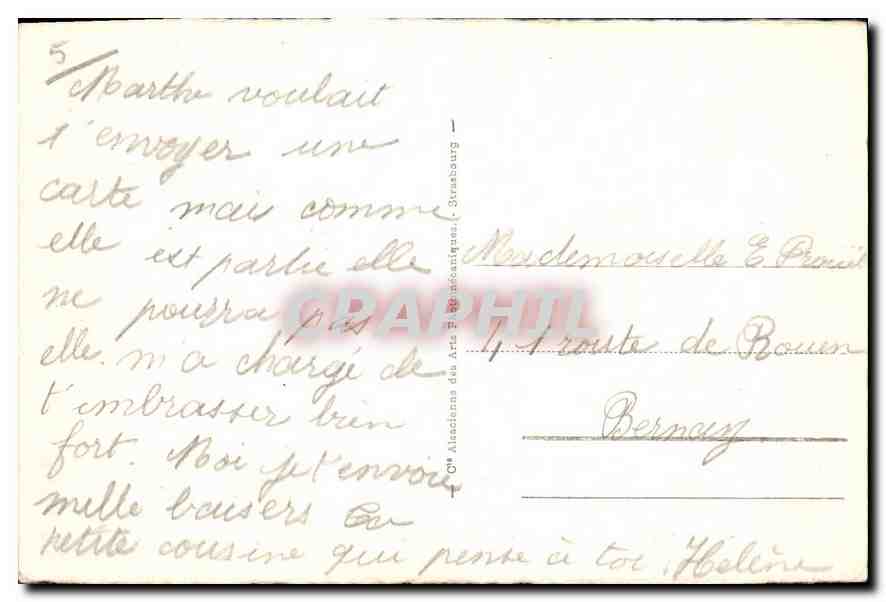 5/
Marthe voulait
t'envoyer une
carte mais comme
elle est partie elle
ne pourra pas
elle m'a chargé de
t'embrasser bien
fort. Moi je t'envoie
mille baisers Ta
petite cousine qui pense à toi. Hélène
Cie Alsacienne des Arts Photomécaniques. - Strasbourg
Mademoiselle E
41 route de Rouen
Bernay
CPAPHIL